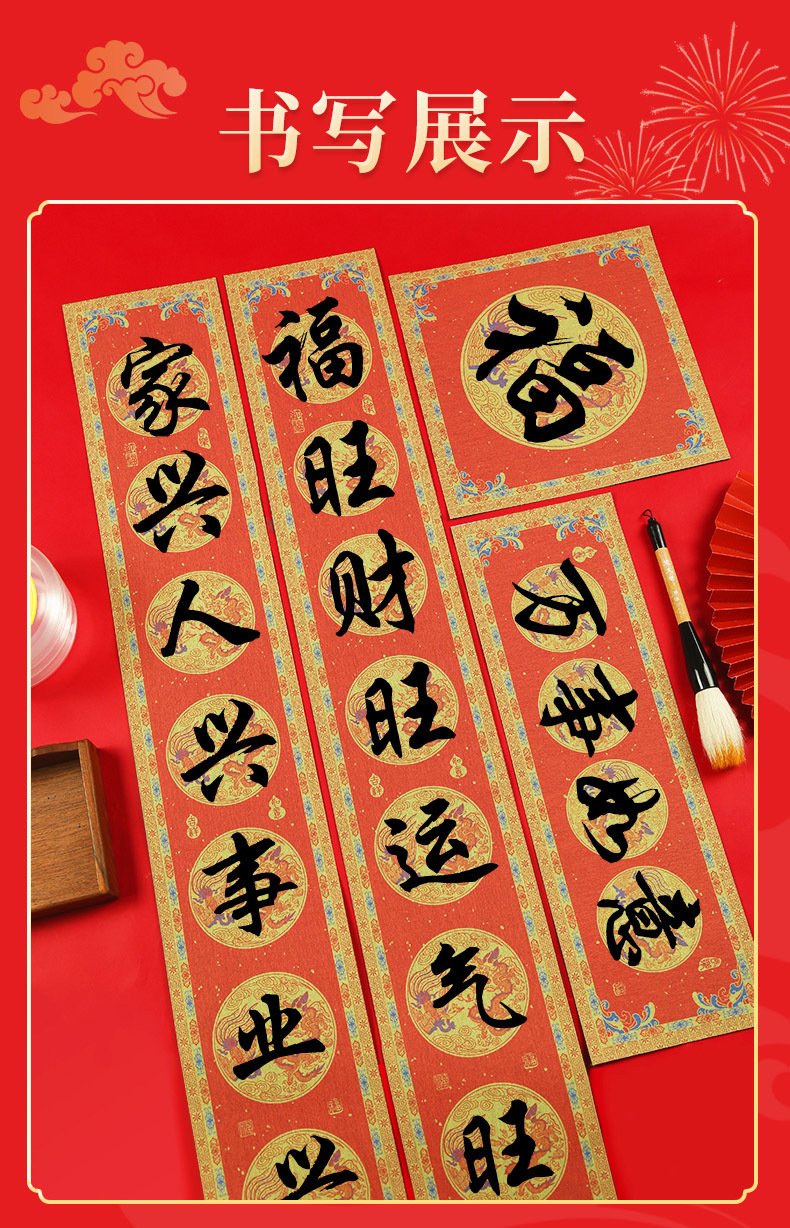 书写展示
家兴人兴事业兴
福旺财旺运气旺
福
万事如意